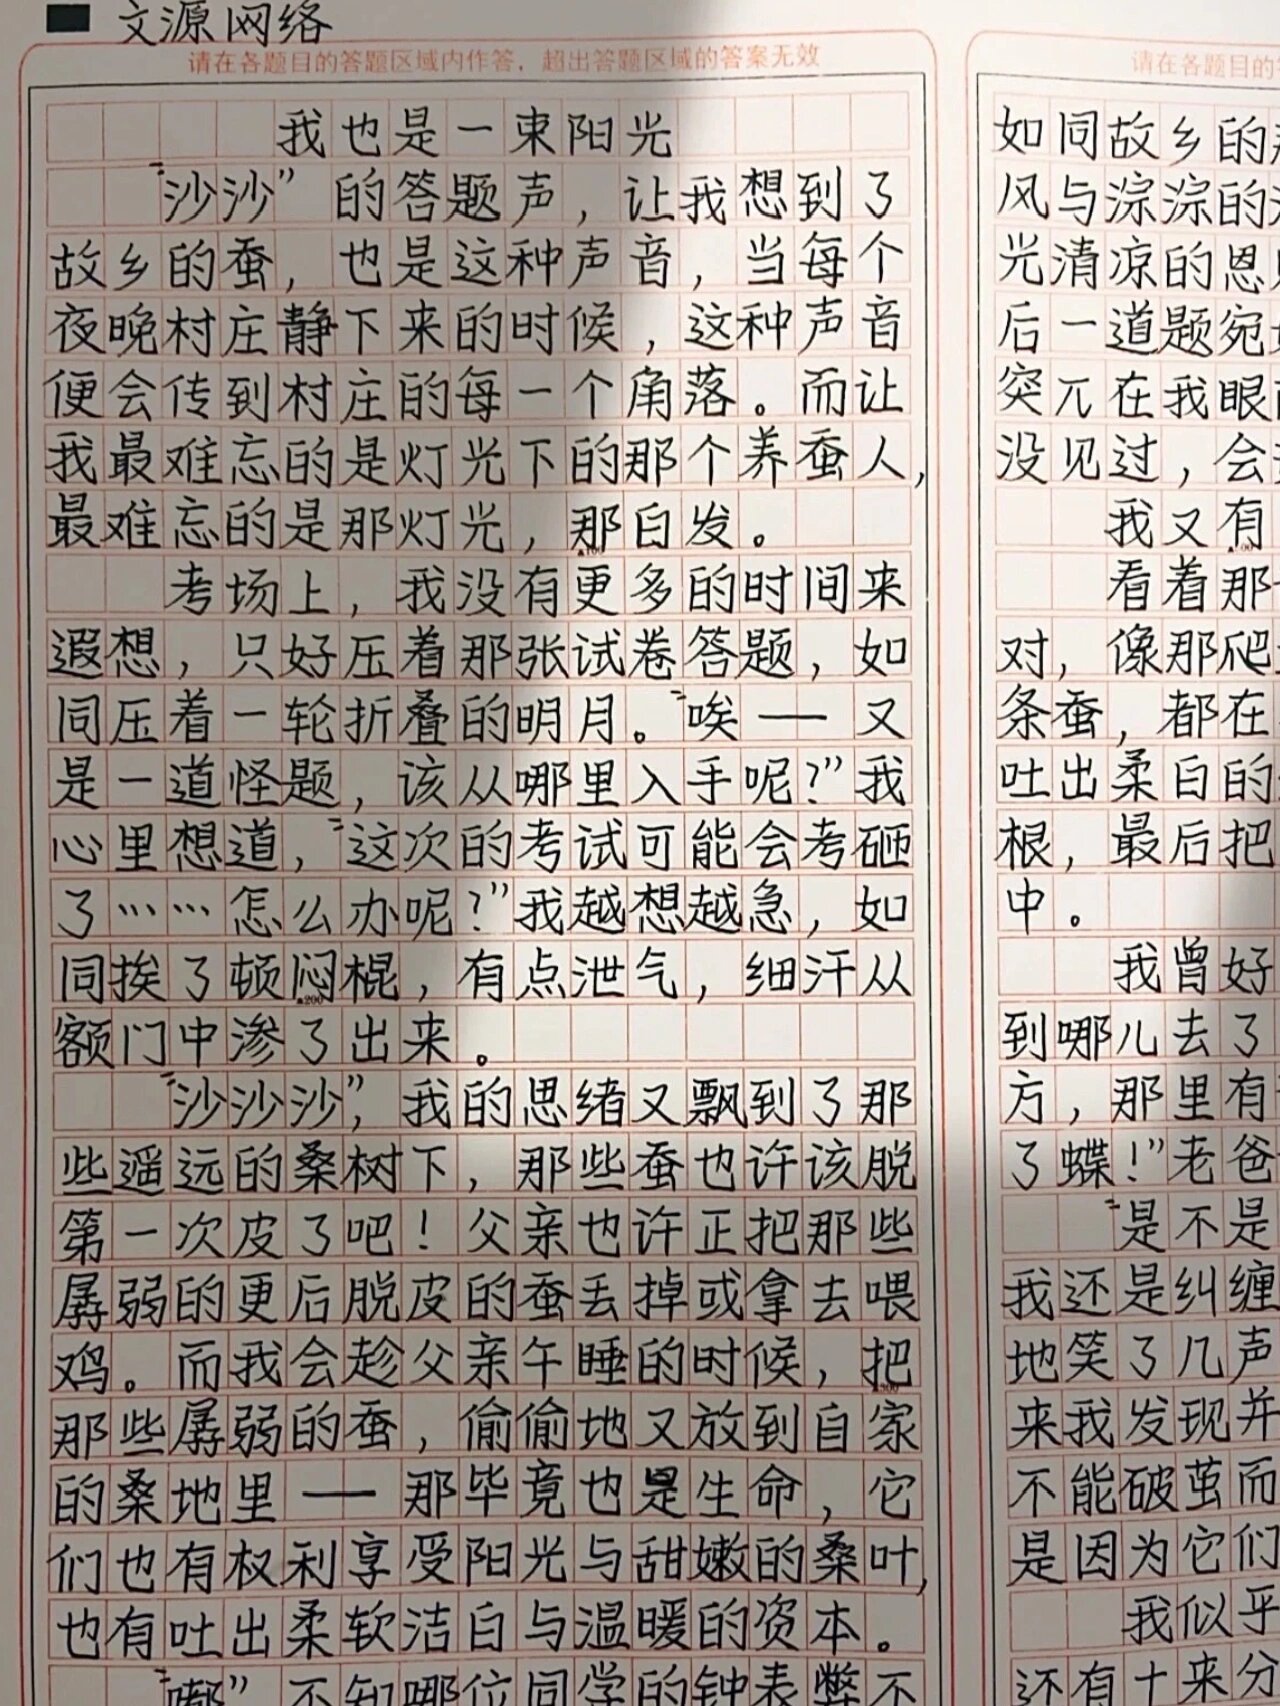 文源网络
请在各题目的答题区域内作答，超出答题区域的答案无效
我也是一束阳光
“沙沙”的答题声，让我想到了
故乡的蚕，也是这种声音，当每个
夜晚村庄静下来的时候，这种声音
便会传到村庄的每一个角落。而让
我最难忘的是灯光下的那个养蚕人，
最难忘的是那灯光，那白发。
▲100
考场上，我没有更多的时间来
遐想，只好压着那张试卷答题，如
同压着一轮折叠的明月。“唉——又
是一道怪题，该从哪里入手呢？”我
心里想道，“这次的考试可能会考砸
了……怎么办呢？”我越想越急，如
同挨了顿闷棍，有点泄气，细汗从
▲200
额门中渗了出来。
“沙沙沙”，我的思绪又飘到了那
些遥远的桑树下，那些蚕也许该脱
第一次皮了吧！父亲也许正把那些
孱弱的更后脱皮的蚕丢掉或拿去喂
鸡。而我会趁父亲午睡的时候，把
▲300
那些孱弱的蚕，偷偷地又放到自家
的桑地里——那毕竟也是生命，它
们也有权利享受阳光与甜嫩的桑叶，
也有吐出柔软洁白与温暖的资本。
“嘟”不知哪位同学的钟表弊不
请在各题目的
如同故乡的
风与淙淙的
光清凉的恩
后一道题宛
突兀在我眼
没见过，会
我又有
看着那
对，像那爬
条蚕，都在
吐出柔白的
根，最后把
中。
我曾好
到哪儿去了
方，那里有
了蝶！”老爸
“是不是
我还是纠缠
地笑了几声
来我发现并
不能破茧而
是因为它们
我似乎
还有十来分